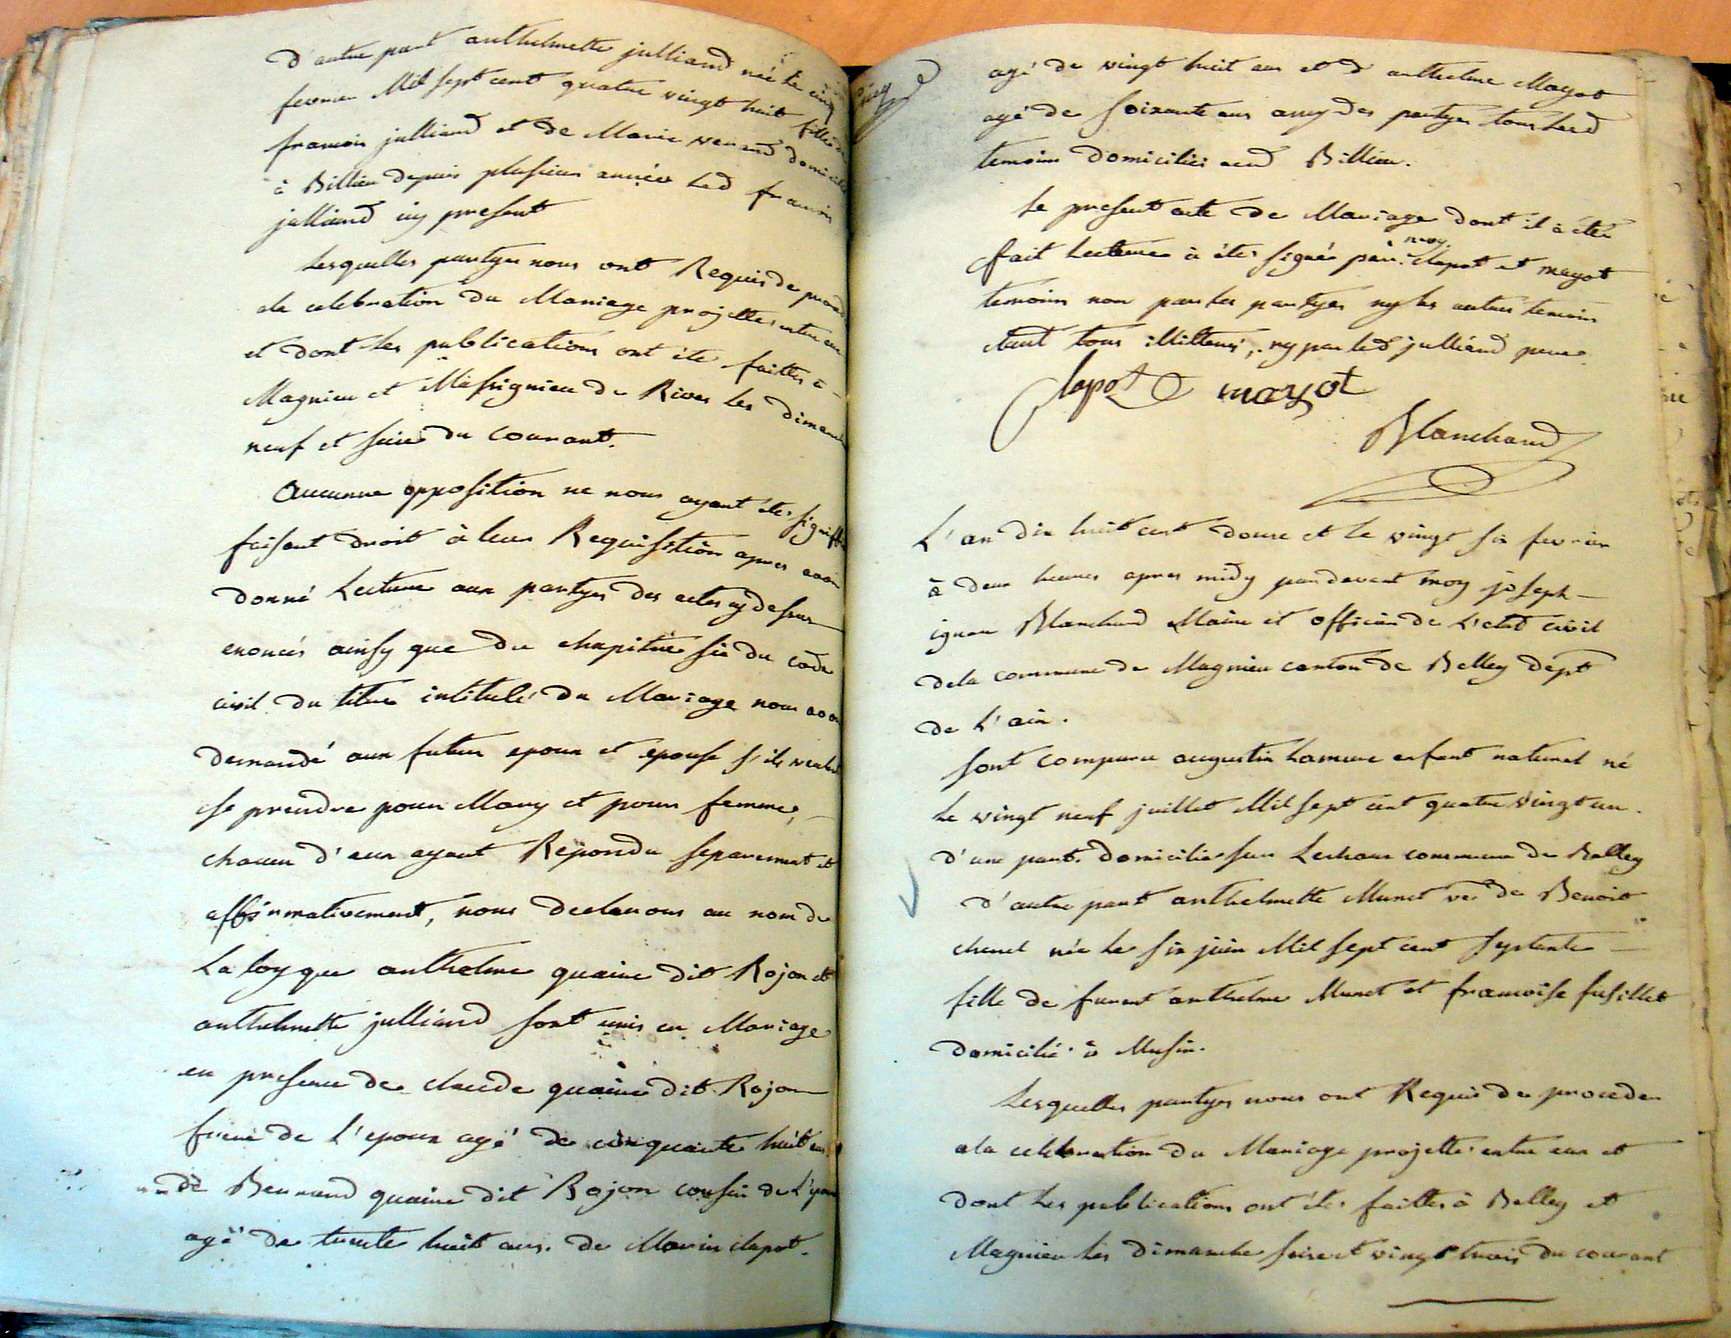 d'autre part anthelmette julliand née le cinq
fevrier Mil sept cent quatre vingt huit fille de
francois julliand et de Marie
à Billieu depuis plusieurs années led francois
julliand icy present
Lesquelles partyes nous ont Requis de proced
a la celebration du Mariage projetté entre eux
et dont les publications ont été faittes à
Magnieu et Massignieu de Rives les dimanche
neuf et seize du courant.
Aucunne opposition ne nous ayant été signiffié
faisant droit à leur Requisition apres avoir
donné Lecture aux partyes des actes cy dessus
enoncés ainsy que du chapitre six du code
civil du titre intitulé du Mariage nous avons
demandé aux futur epoux et epouse s'ils veulent
se prendre pour Mary et pour femme,
chacun d'eux ayant Repondu separement et
affirmativement, nous declarons au nom de
La loy que anthelme quaine dit Rojon et
anthelmette julliand sont unis en Mariage
en presence de claude quaine dit Rojon
frere de L'epoux agé de cinquante huit ans
de Bernard quaine dit Rojon cousin de L'epoux
agé de trente huit ans. de Marin clapot.
agé de vingt huit ans et d'anthelme Mayot
agé de soixante ans amy des partyes tous lesd
temoins domiciliés aud Billieu.
Le present acte de Mariage dont il a été
fait Lecture a été signé par moy clapot et mayot
temoins non par les partyes ny les autres temoins
etant tous illitterés, ny par led julliand pere.
Clapot mayot
Blanchard
L'an dix huit cent douze et le vingt six fevrier
à deux heures apres midy pardevant moy joseph
ignace Blanchard Maire et officier de L'etat civil
de la commune de Magnieu canton de Belley dept
de L'ain.
Sont comparu augustin Lamure enfant naturel né
Le vingt neuf juillet Mil sept cent quatre vingt un.
d'une part. domicilié sur commune de Belley
d'autre part anthelmette Munet ve de Benoit
chenel née le six juin Mil sept cent septente
fille de furent anthelme Munet et francoise fusillet
domicilié à Musin.
Lesquelles partyes nous ont Requis de proceder
a la celebration du Mariage projetté entre eux et
dont les publications ont été faittes à Belley et
Magnieu les dimanche seize et vingt trois du courant